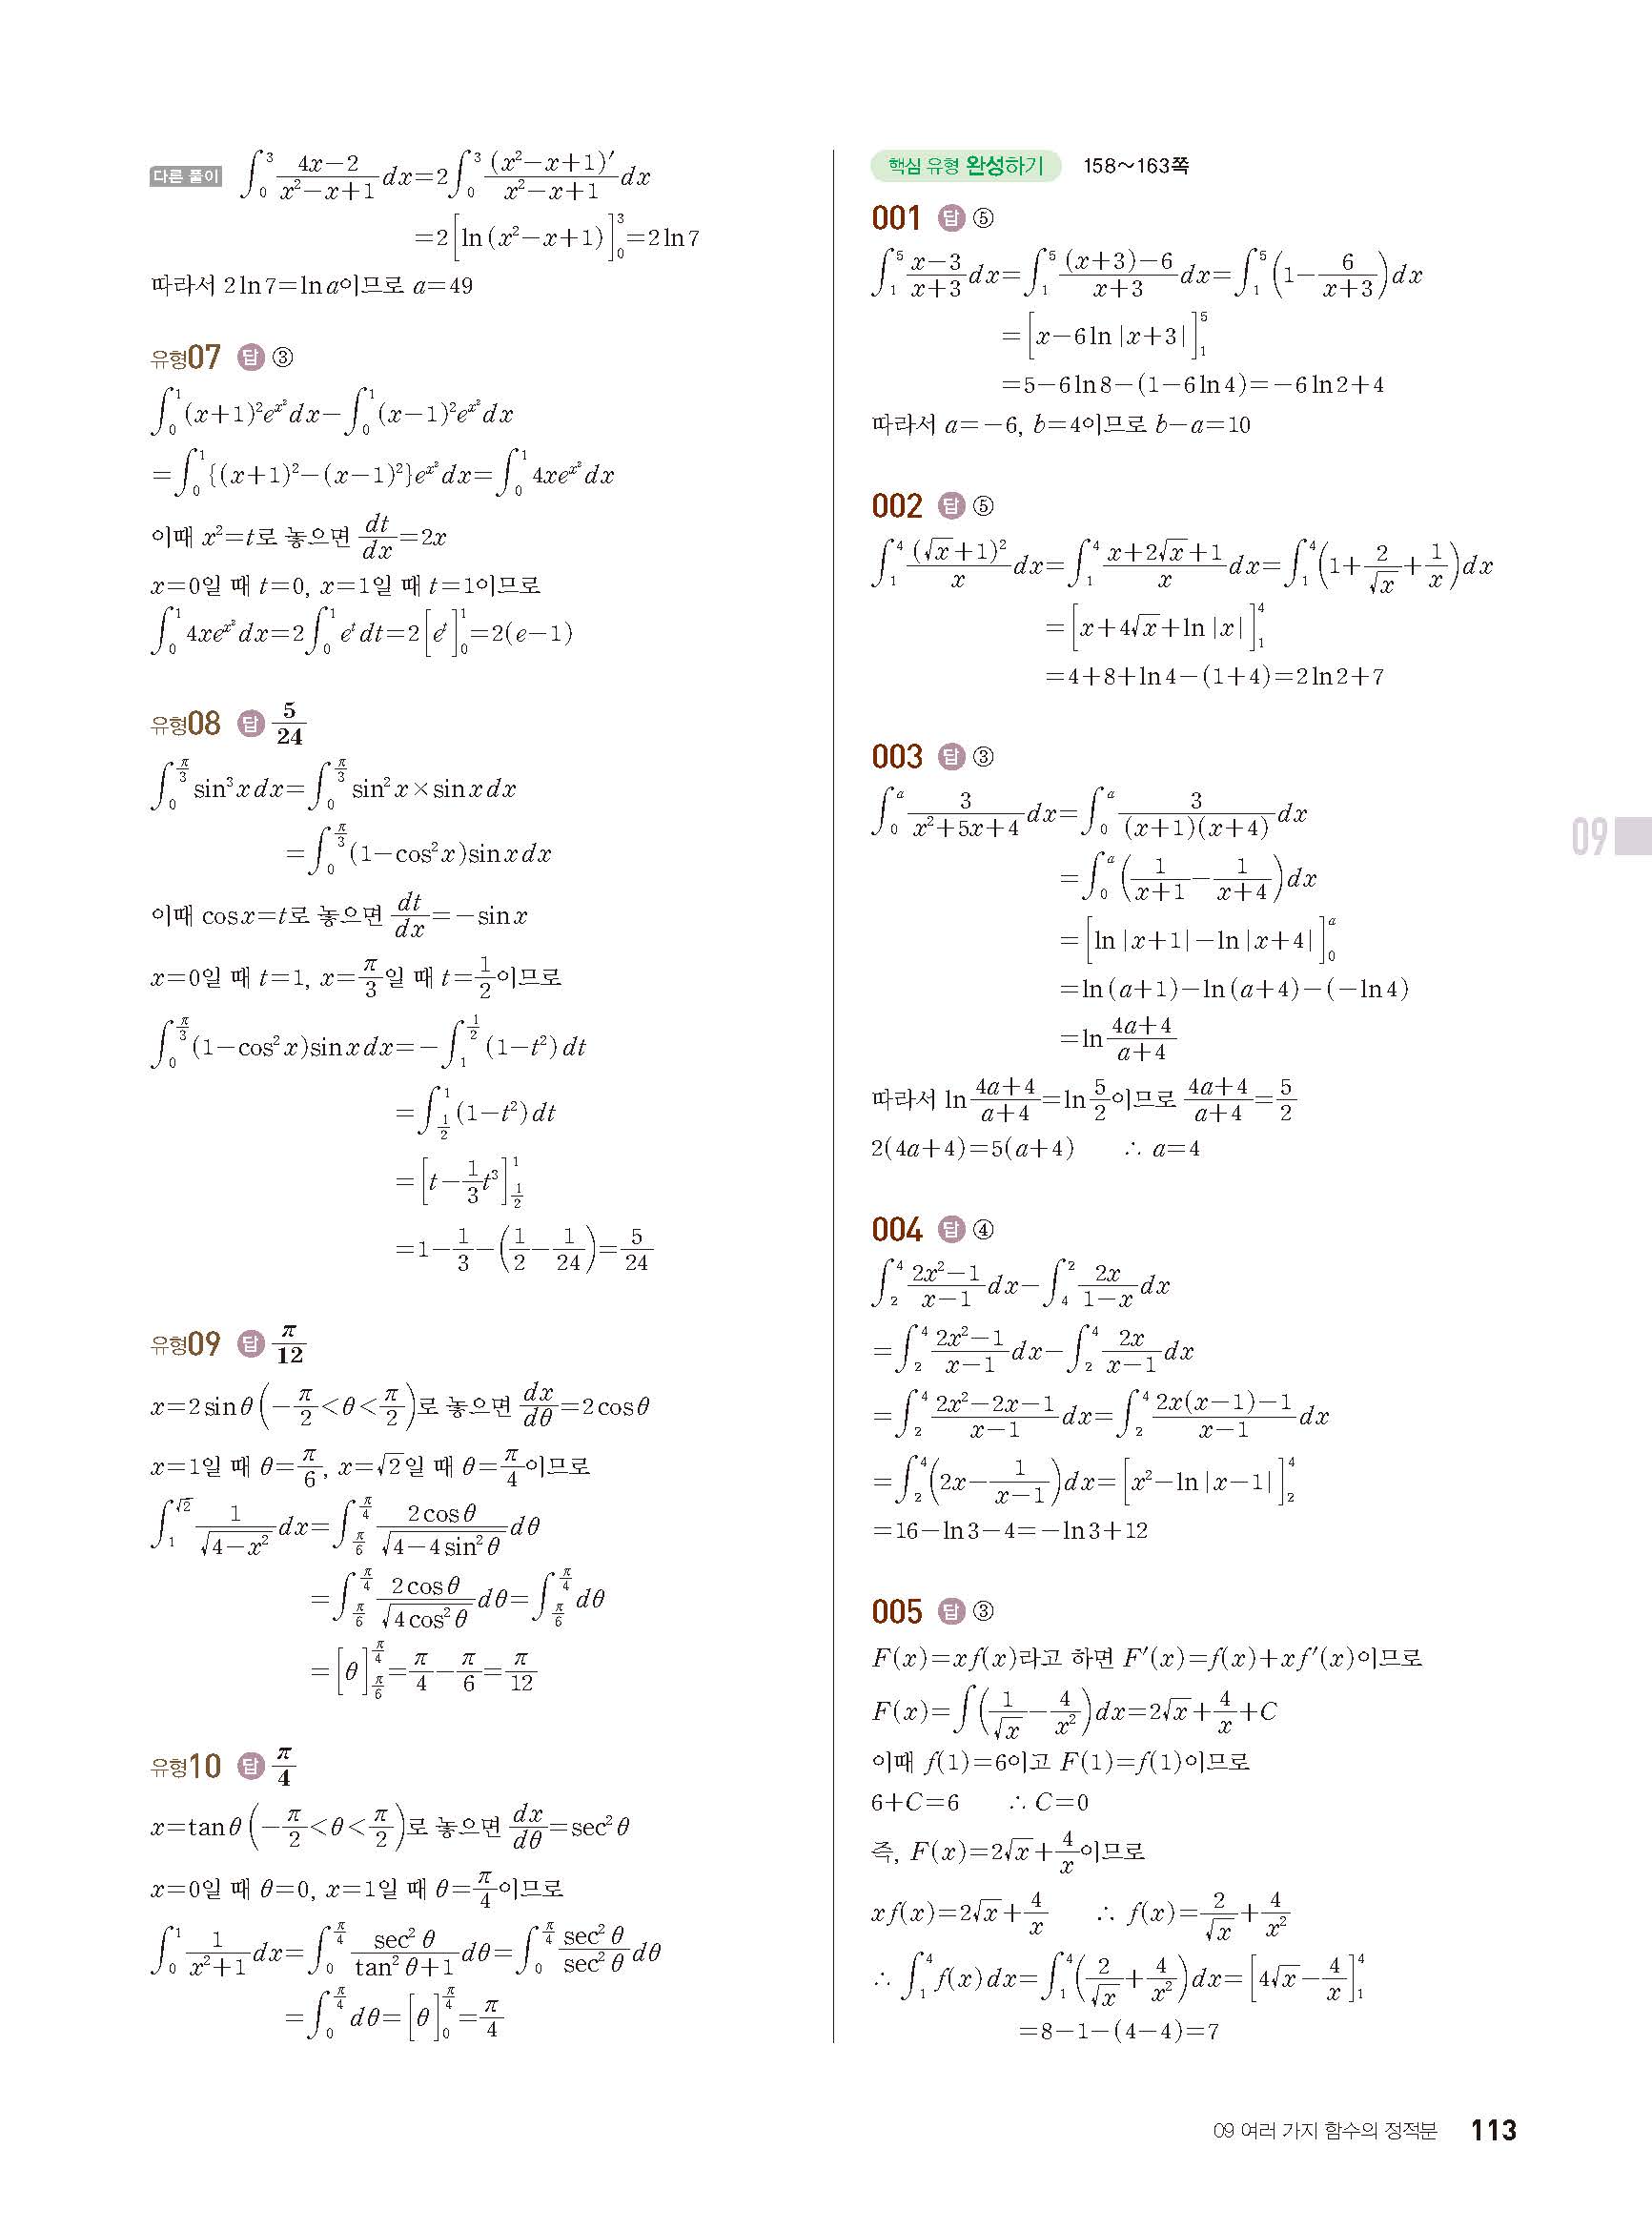 다른 풀이 ∫₀³ (4x−2)/(x²−x+1) dx=2∫₀³ (x²−x+1)′/(x²−x+1) dx
=2[ln(x²−x+1)]₀³=2ln7
따라서 2ln7=ln a이므로 a=49
유형07 답 ③
∫₀¹(x+1)²e^{x²}dx−∫₀¹(x−1)²e^{x²}dx
=∫₀¹{(x+1)²−(x−1)²}e^{x²}dx=∫₀¹4xe^{x²}dx
이때 x²=t로 놓으면 dt/dx=2x
x=0일 때 t=0, x=1일 때 t=1이므로
∫₀¹4xe^{x²}dx=2∫₀¹e^t dt=2[e^t]₀¹=2(e−1)
유형08 답 5/24
∫₀^{π/3} sin³x dx=∫₀^{π/3} sin²x×sin x dx
=∫₀^{π/3}(1−cos²x)sin x dx
이때 cos x=t로 놓으면 dt/dx=−sin x
x=0일 때 t=1, x=π/3일 때 t=1/2이므로
∫₀^{π/3}(1−cos²x)sin x dx=−∫₁^{1/2}(1−t²)dt
=∫_{1/2}^1(1−t²)dt
=[t−(1/3)t³]_{1/2}^1
=1−1/3−(1/2−1/24)=5/24
유형09 답 π/12
x=2sinθ(−π/2<θ<π/2)로 놓으면 dx/dθ=2cosθ
x=1일 때 θ=π/6, x=√2일 때 θ=π/4이므로
∫₁^{√2} 1/√(4−x²) dx=∫_{π/6}^{π/4} 2cosθ/√(4−4sin²θ) dθ
=∫_{π/6}^{π/4} 2cosθ/√(4cos²θ) dθ=∫_{π/6}^{π/4} dθ
=[θ]_{π/6}^{π/4}=π/4−π/6=π/12
유형10 답 π/4
x=tanθ(−π/2<θ<π/2)로 놓으면 dx/dθ=sec²θ
x=0일 때 θ=0, x=1일 때 θ=π/4이므로
∫₀¹ 1/(x²+1) dx=∫₀^{π/4} sec²θ/(tan²θ+1) dθ=∫₀^{π/4} sec²θ/sec²θ dθ
=∫₀^{π/4} dθ=[θ]₀^{π/4}=π/4
핵심 유형 완성하기 158~163쪽
001 답 ⑤
∫₁⁵ (x−3)/(x+3) dx=∫₁⁵ {(x+3)−6}/(x+3) dx=∫₁⁵(1−6/(x+3))dx
=[x−6ln|x+3|]₁⁵
=5−6ln8−(1−6ln4)=−6ln2+4
따라서 a=−6, b=4이므로 b−a=10
002 답 ⑤
∫₁⁴ (√x+1)²/x dx=∫₁⁴ (x+2√x+1)/x dx=∫₁⁴(1+2/√x+1/x)dx
=[x+4√x+ln|x|]₁⁴
=4+8+ln4−(1+4)=2ln2+7
003 답 ③
∫₀^a 3/(x²+5x+4) dx=∫₀^a 3/((x+1)(x+4)) dx
=∫₀^a(1/(x+1)−1/(x+4))dx
=[ln|x+1|−ln|x+4|]₀^a
=ln(a+1)−ln(a+4)−(−ln4)
=ln (4a+4)/(a+4)
따라서 ln (4a+4)/(a+4)=ln 5/2이므로 (4a+4)/(a+4)=5/2
2(4a+4)=5(a+4) ∴ a=4
004 답 ④
∫₂⁴ (2x²−1)/(x−1) dx−∫₄² 2x/(1−x) dx
=∫₂⁴ (2x²−1)/(x−1) dx−∫₂⁴ 2x/(x−1) dx
=∫₂⁴ (2x²−2x−1)/(x−1) dx=∫₂⁴ (2x(x−1)−1)/(x−1) dx
=∫₂⁴(2x−1/(x−1))dx=[x²−ln|x−1|]₂⁴
=16−ln3−4=−ln3+12
005 답 ③
F(x)=xf(x)라고 하면 F′(x)=f(x)+xf′(x)이므로
F(x)=∫(1/√x−4/x²)dx=2√x+4/x+C
이때 f(1)=6이고 F(1)=f(1)이므로
6+C=6 ∴ C=0
즉, F(x)=2√x+4/x이므로
xf(x)=2√x+4/x ∴ f(x)=2/√x+4/x²
∴ ∫₁⁴f(x)dx=∫₁⁴(2/√x+4/x²)dx=[4√x−4/x]₁⁴
=8−1−(4−4)=7
09
09 여러 가지 함수의 정적분 113